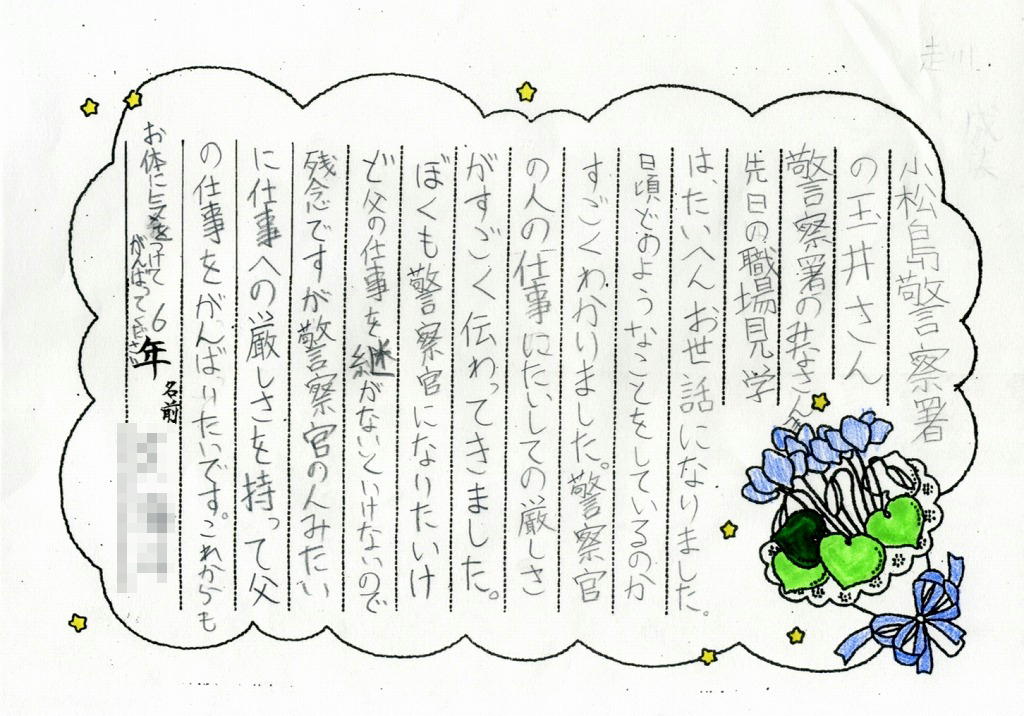 小松島警察署
の玉井さん
警察署のみなさんへ
先日の職場見学
は、たいへんお世話になりました。
日頃どのようなことをしているのか
すごくわかりました。警察官
の人の仕事にたいしての厳しさ
がすごく伝わってきました。
ぼくも警察官になりたいけ
ど父の仕事を継がないといけないので
残念ですが警察官の人みたい
に仕事への厳しさを持って父
の仕事をがんばりたいです。これからも
お体に気をつけて
がんばってください
6年
名前